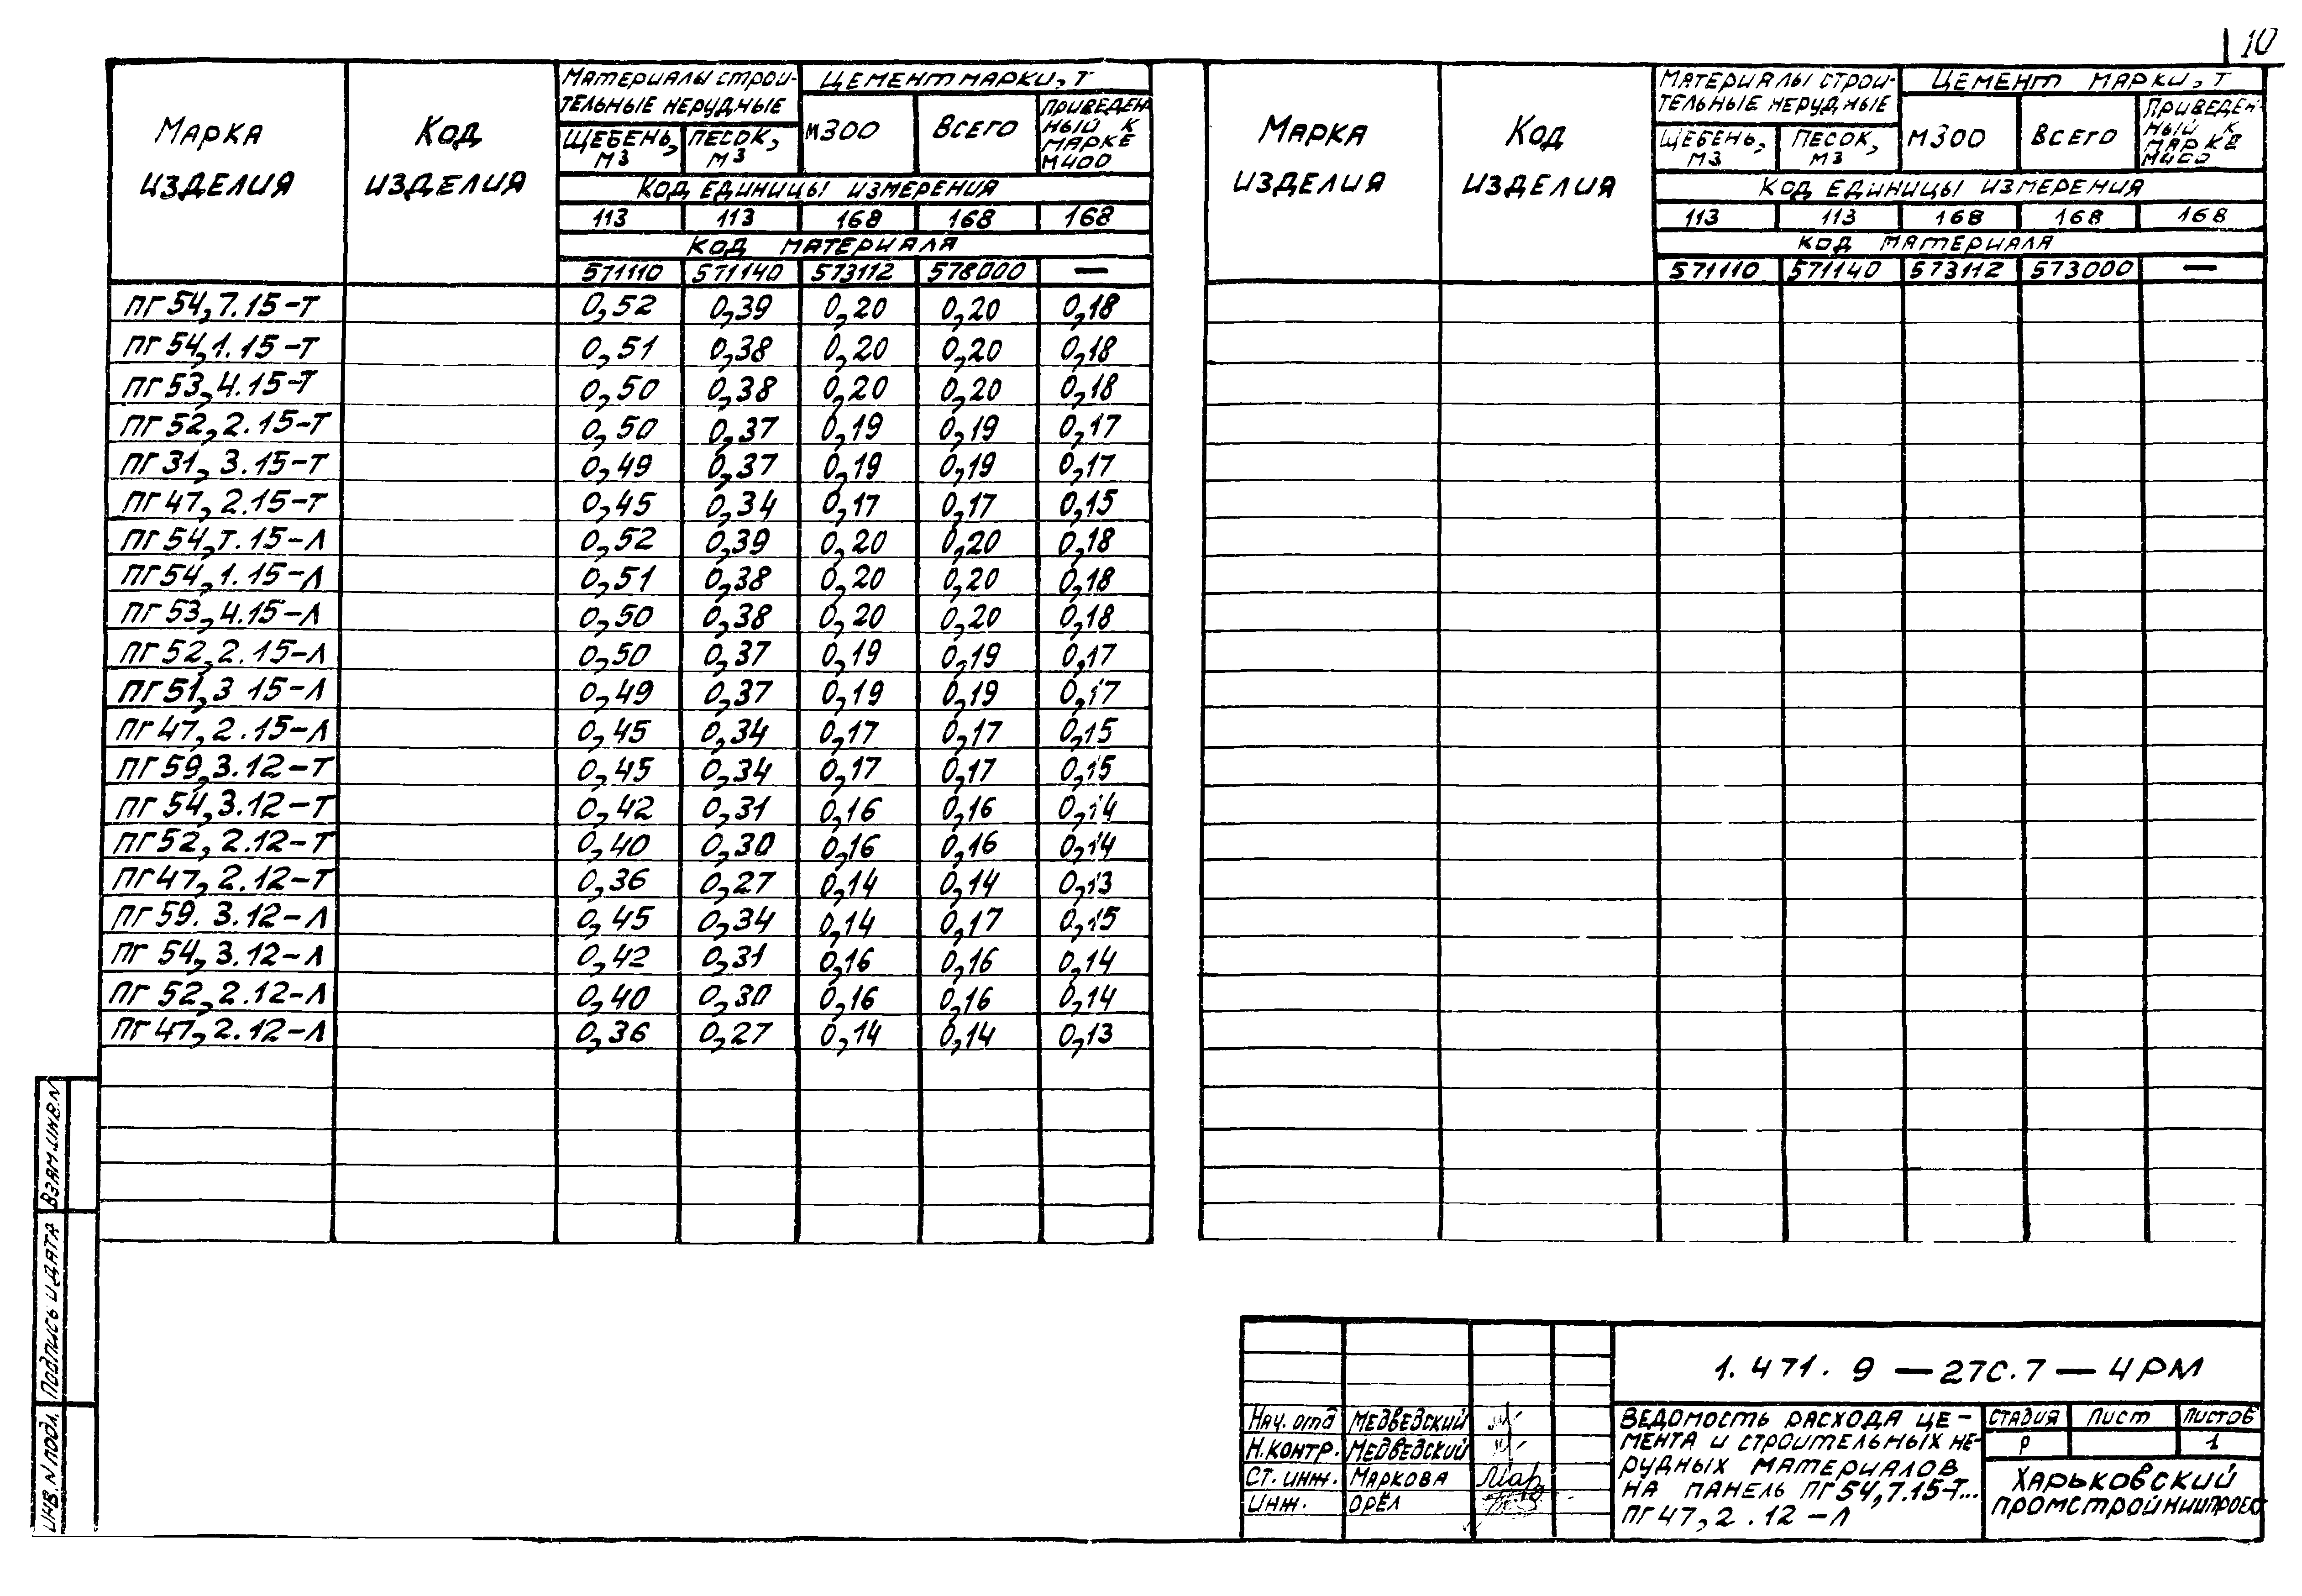 10
МАРКА ИЗДЕЛИЯ
КОД ИЗДЕЛИЯ
МАТЕРИАЛЫ СТРОИ-
ТЕЛЬНЫЕ НЕРУДНЫЕ
ЦЕМЕНТ МАРКИ, Т
ЩЕБЕНЬ, М3
ПЕСОК, М3
М300
ВСЕГО
ПРИВЕДЕН-
НЫЙ К
МАРКЕ
М400
КОД ЕДИНИЦЫ ИЗМЕРЕНИЯ
113 113 168 168 168
КОД МАТЕРИАЛА
571110 571140 573112 578000 —
ПГ 54,7.15-Т 0,52 0,39 0,20 0,20 0,18
ПГ 54,1.15-Т 0,51 0,38 0,20 0,20 0,18
ПГ 53,4.15-Т 0,50 0,38 0,20 0,20 0,18
ПГ 52,2.15-Т 0,50 0,37 0,19 0,19 0,17
ПГ 31,3.15-Т 0,49 0,37 0,19 0,19 0,17
ПГ 47,2.15-Т 0,45 0,34 0,17 0,17 0,15
ПГ 54,Т.15-Л 0,52 0,39 0,20 0,20 0,18
ПГ 54,1.15-Л 0,51 0,38 0,20 0,20 0,18
ПГ 53,4.15-Л 0,50 0,38 0,20 0,20 0,18
ПГ 52,2.15-Л 0,50 0,37 0,19 0,19 0,17
ПГ 51,3 15-Л 0,49 0,37 0,19 0,19 0,17
ПГ 47,2.15-Л 0,45 0,34 0,17 0,17 0,15
ПГ 59,3.12-Т 0,45 0,34 0,17 0,17 0,15
ПГ 54,3.12-Т 0,42 0,31 0,16 0,16 0,14
ПГ 52,2.12-Т 0,40 0,30 0,16 0,16 0,14
ПГ 47,2.12-Т 0,36 0,27 0,14 0,14 0,13
ПГ 59.3.12-Л 0,45 0,34 0,14 0,17 0,15
ПГ 54,3.12-Л 0,42 0,31 0,16 0,16 0,14
ПГ 52,2.12-Л 0,40 0,30 0,16 0,16 0,14
ПГ 47,2.12-Л 0,36 0,27 0,14 0,14 0,13
МАРКА ИЗДЕЛИЯ
КОД ИЗДЕЛИЯ
МАТЕРИАЛЫ СТРОИ-
ТЕЛЬНЫЕ НЕРУДНЫЕ
ЦЕМЕНТ МАРКИ, Т
ЩЕБЕНЬ, М3
ПЕСОК, М3
М300
ВСЕГО
ПРИВЕДЕН-
НЫЙ К
МАРКЕ
М400
КОД ЕДИНИЦЫ ИЗМЕРЕНИЯ
113 113 168 168 168
КОД МАТЕРИАЛА
571110 571140 573112 573000 —
ВЗАМ.ИНВ.N
ПОДПИСЬ И ДАТА
ИНВ.N ПОДЛ.
1.471.9 — 27С.7 — 4РМ
НАЧ. ОТД МЕДВЕДСКИЙ
Н.КОНТР. МЕДВЕДСКИЙ
СТ. ИНЖ. МАРКОВА Мар
ИНЖ. ОРЁЛ
ВЕДОМОСТЬ РАСХОДА ЦЕ-
МЕНТА И СТРОИТЕЛЬНЫХ НЕ-
РУДНЫХ МАТЕРИАЛОВ
НА ПАНЕЛЬ ПГ 54,7.15-Т...
ПГ 47,2.12-Л
СТАДИЯ ЛИСТ ЛИСТОВ
Р 1
ХАРЬКОВСКИЙ
ПРОМСТРОЙНИИПРОЕКТ